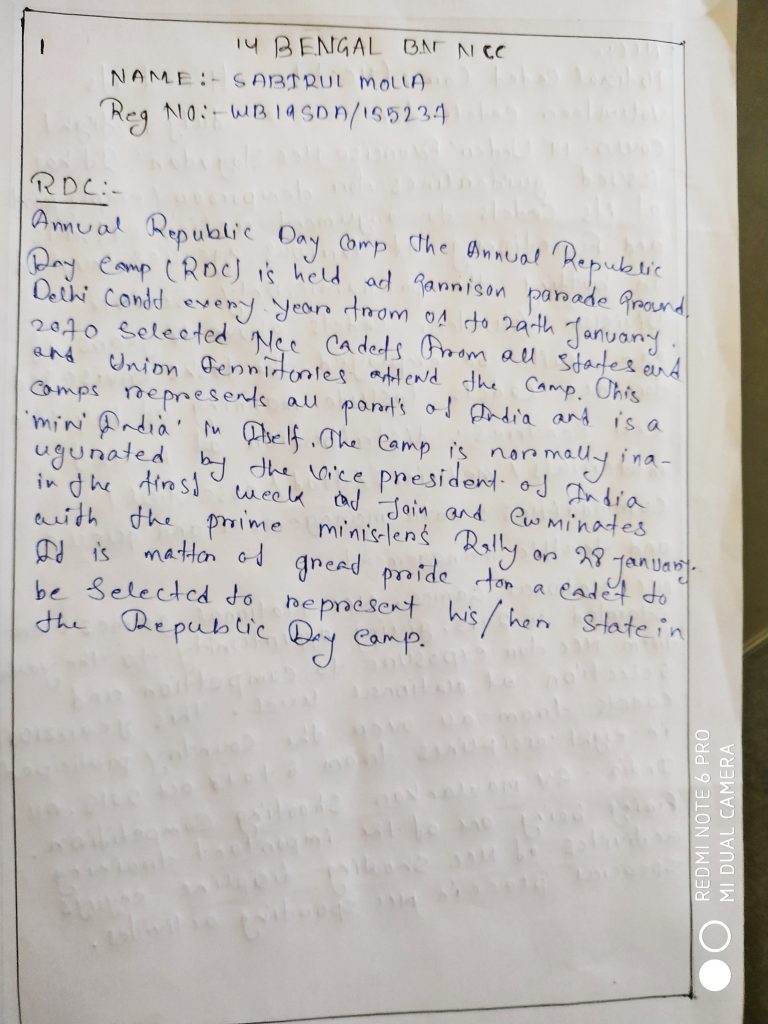 1
14 BENGAL BN NCC
NAME:- SABIRUL MOLLA
Reg NO:- WB19SDA/155237
RDC:-
Annual Republic Day Camp The Annual Republic
Day Camp (RDC) is held at Garrison parade Ground,
Delhi Condt every year from 01 to 29th January.
2070 Selected Ncc Cadets from all States and
and Union Territories attend the Camp. This
Camps represents all parts of India and is a
'mini India' in Itself. The Camp is normally ina-
ugurated by the vice president of India
in the first week of Join and Cuminates
with the prime minister's Rally on 28 January.
It is matter of great pride for a cadet to
be Selected to represent his/her State in
the Republic Day camp.
REDMI NOTE 6 PRO
MI DUAL CAMERA